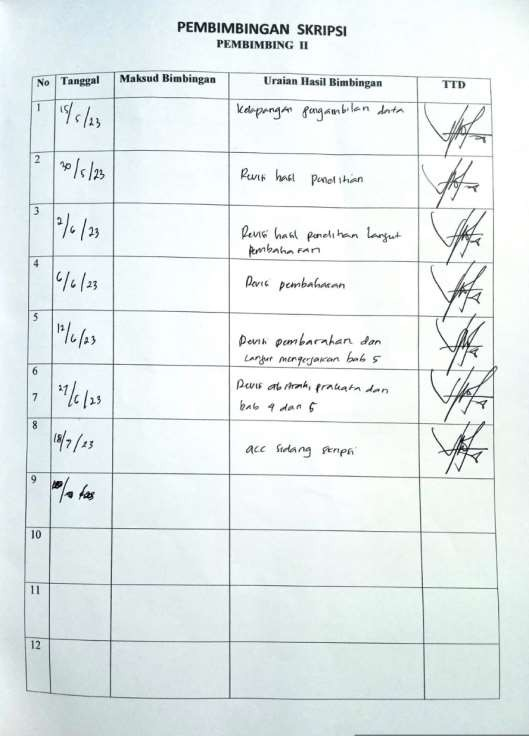 PEMBIMBINGAN SKRIPSI
PEMBIMBING II
No Tanggal Maksud Bimbingan Uraian Hasil Bimbingan TTD
1 15/5/23 Kelapangan pengambilan data
2 30/5/23 Revisi hasil penelitian
3 2/6/23 Revisi hasil penelitian Langut
Pembahasan
4 6/6/23 Revisi pembahasan
5 12/6/23 Revisi pembahasan dan
Langut mengerjakan bab 5
6
7 27/6/23 Revisi abstrak, prakata dan
bab 4 dan 5
8 18/7/23 acc Sidang skripsi
9
10
11
12